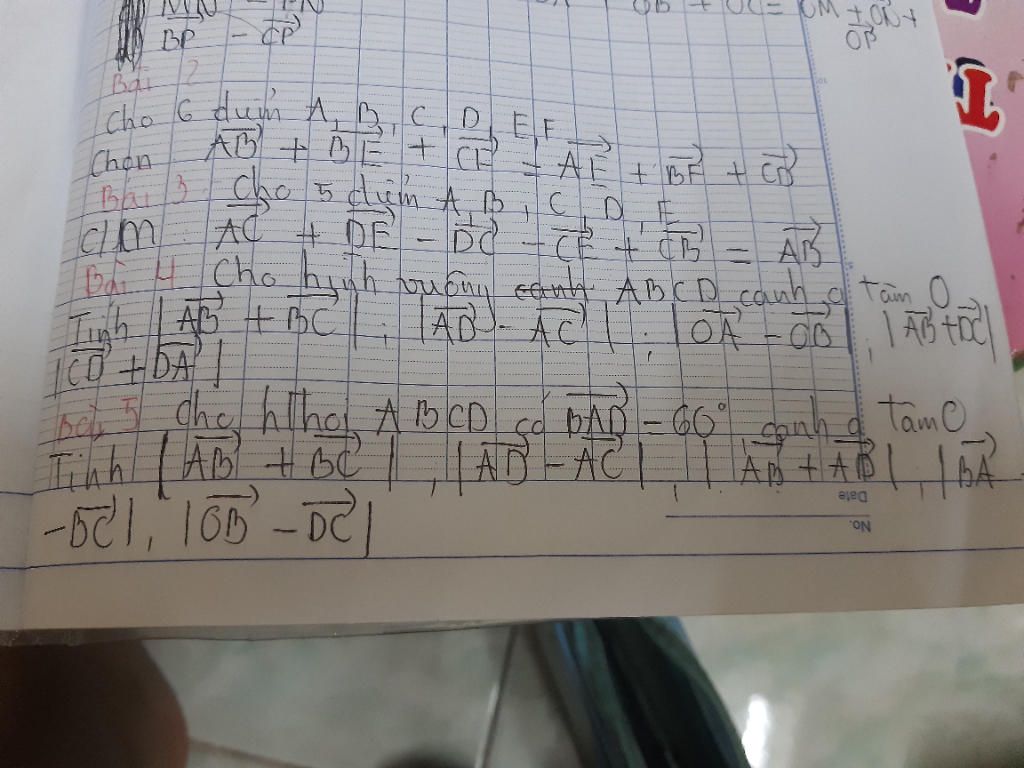 BP - CP
OB + OC = OM + ON +
OP
Bài 2
Cho 6 điểm A, B, C, D, E, F
AB + BE + CF = AE + BF + CB
Bài 3 Cho 5 điểm A, B, C, D, E
C/M AC + DE - DC - CE + CB = AB
Bài 4 Cho hình vuông canh ABCD cạnh a tâm O
Tính |AB + BC| ; |AD - AC| ; |OA - OB| ; |AB + DC|
|CD + DA|
Bài 5 Cho hThoi ABCD có BAD = 60° cạnh a tâm O
Tính |AB + BC| , |AD - AC| , |AB + AD| , |BA
- BC| , |OB - DC|
Date
No.